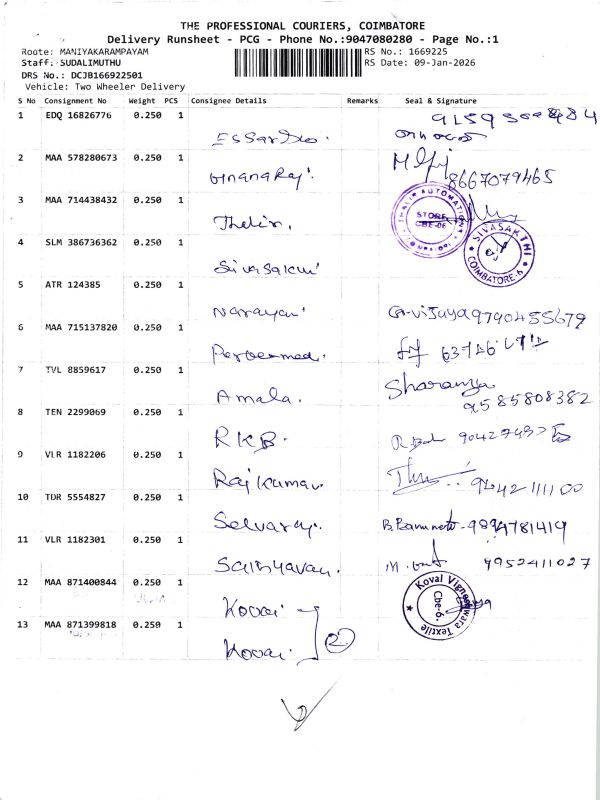 THE PROFESSIONAL COURIERS, COIMBATORE
Delivery Runsheet - PCG - Phone No.:9047080280 - Page No.:1
Route: MANIYAKARAMPAYAM RS No.: 1669225
Staff: SUDALIMUTHU RS Date: 09-Jan-2026
DRS No.: DCJB166922501
Vehicle: Two Wheeler Delivery
S No Consignment No Weight PCS Consignee Details Remarks Seal & Signature
1 EDQ 16826776 0.250 1
2 MAA 578280673 0.250 1
Gnanaraj. 8667079465
3 MAA 714438432 0.250 1
THALIR AUTOMATIONS STORE CBE-06
4 SLM 386736362 0.250 1
SIVASAKTHI COIMBATORE-6
Sivasakthi
5 ATR 124385 0.250 1
Narayan G.Vijaya 9790455679
6 MAA 715137820 0.250 1
7 TVL 8859617 0.250 1
Sharanya
Amala. 9585808382
8 TEN 2299069 0.250 1
RKB.
9 VLR 1182206 0.250 1
Rajkumar 9642111100
10 TDR 5554827 0.250 1
Selvaraj. 9894781419
11 VLR 1182301 0.250 1
9952411027
12 MAA 871400844 0.250 1
Kovai Vigneswara Textile Cbe-6.
Kovai.
13 MAA 871399818 0.250 1
Kovai. 2